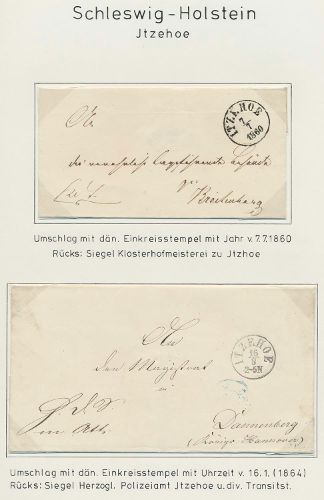 Schleswig-Holstein
Jtzehoe
An
ITZEHOE
7/7
1860
die verehrliche
zu
Breitenburg
Umschlag mit dän. Einkreisstempel mit Jahr v. 7.7.1860
Rücks: Siegel Klosterhofmeisterei zu Jtzhoe
An
ITZEHOE
16
2-5N
den Magistrat
in
Dannenberg
(Königr. Hannover)
Umschlag mit dän. Einkreisstempel mit Uhrzeit v. 16.1. (1864)
Rücks: Siegel Herzogl. Polizeiamt Jtzehoe u. div. Transitst.